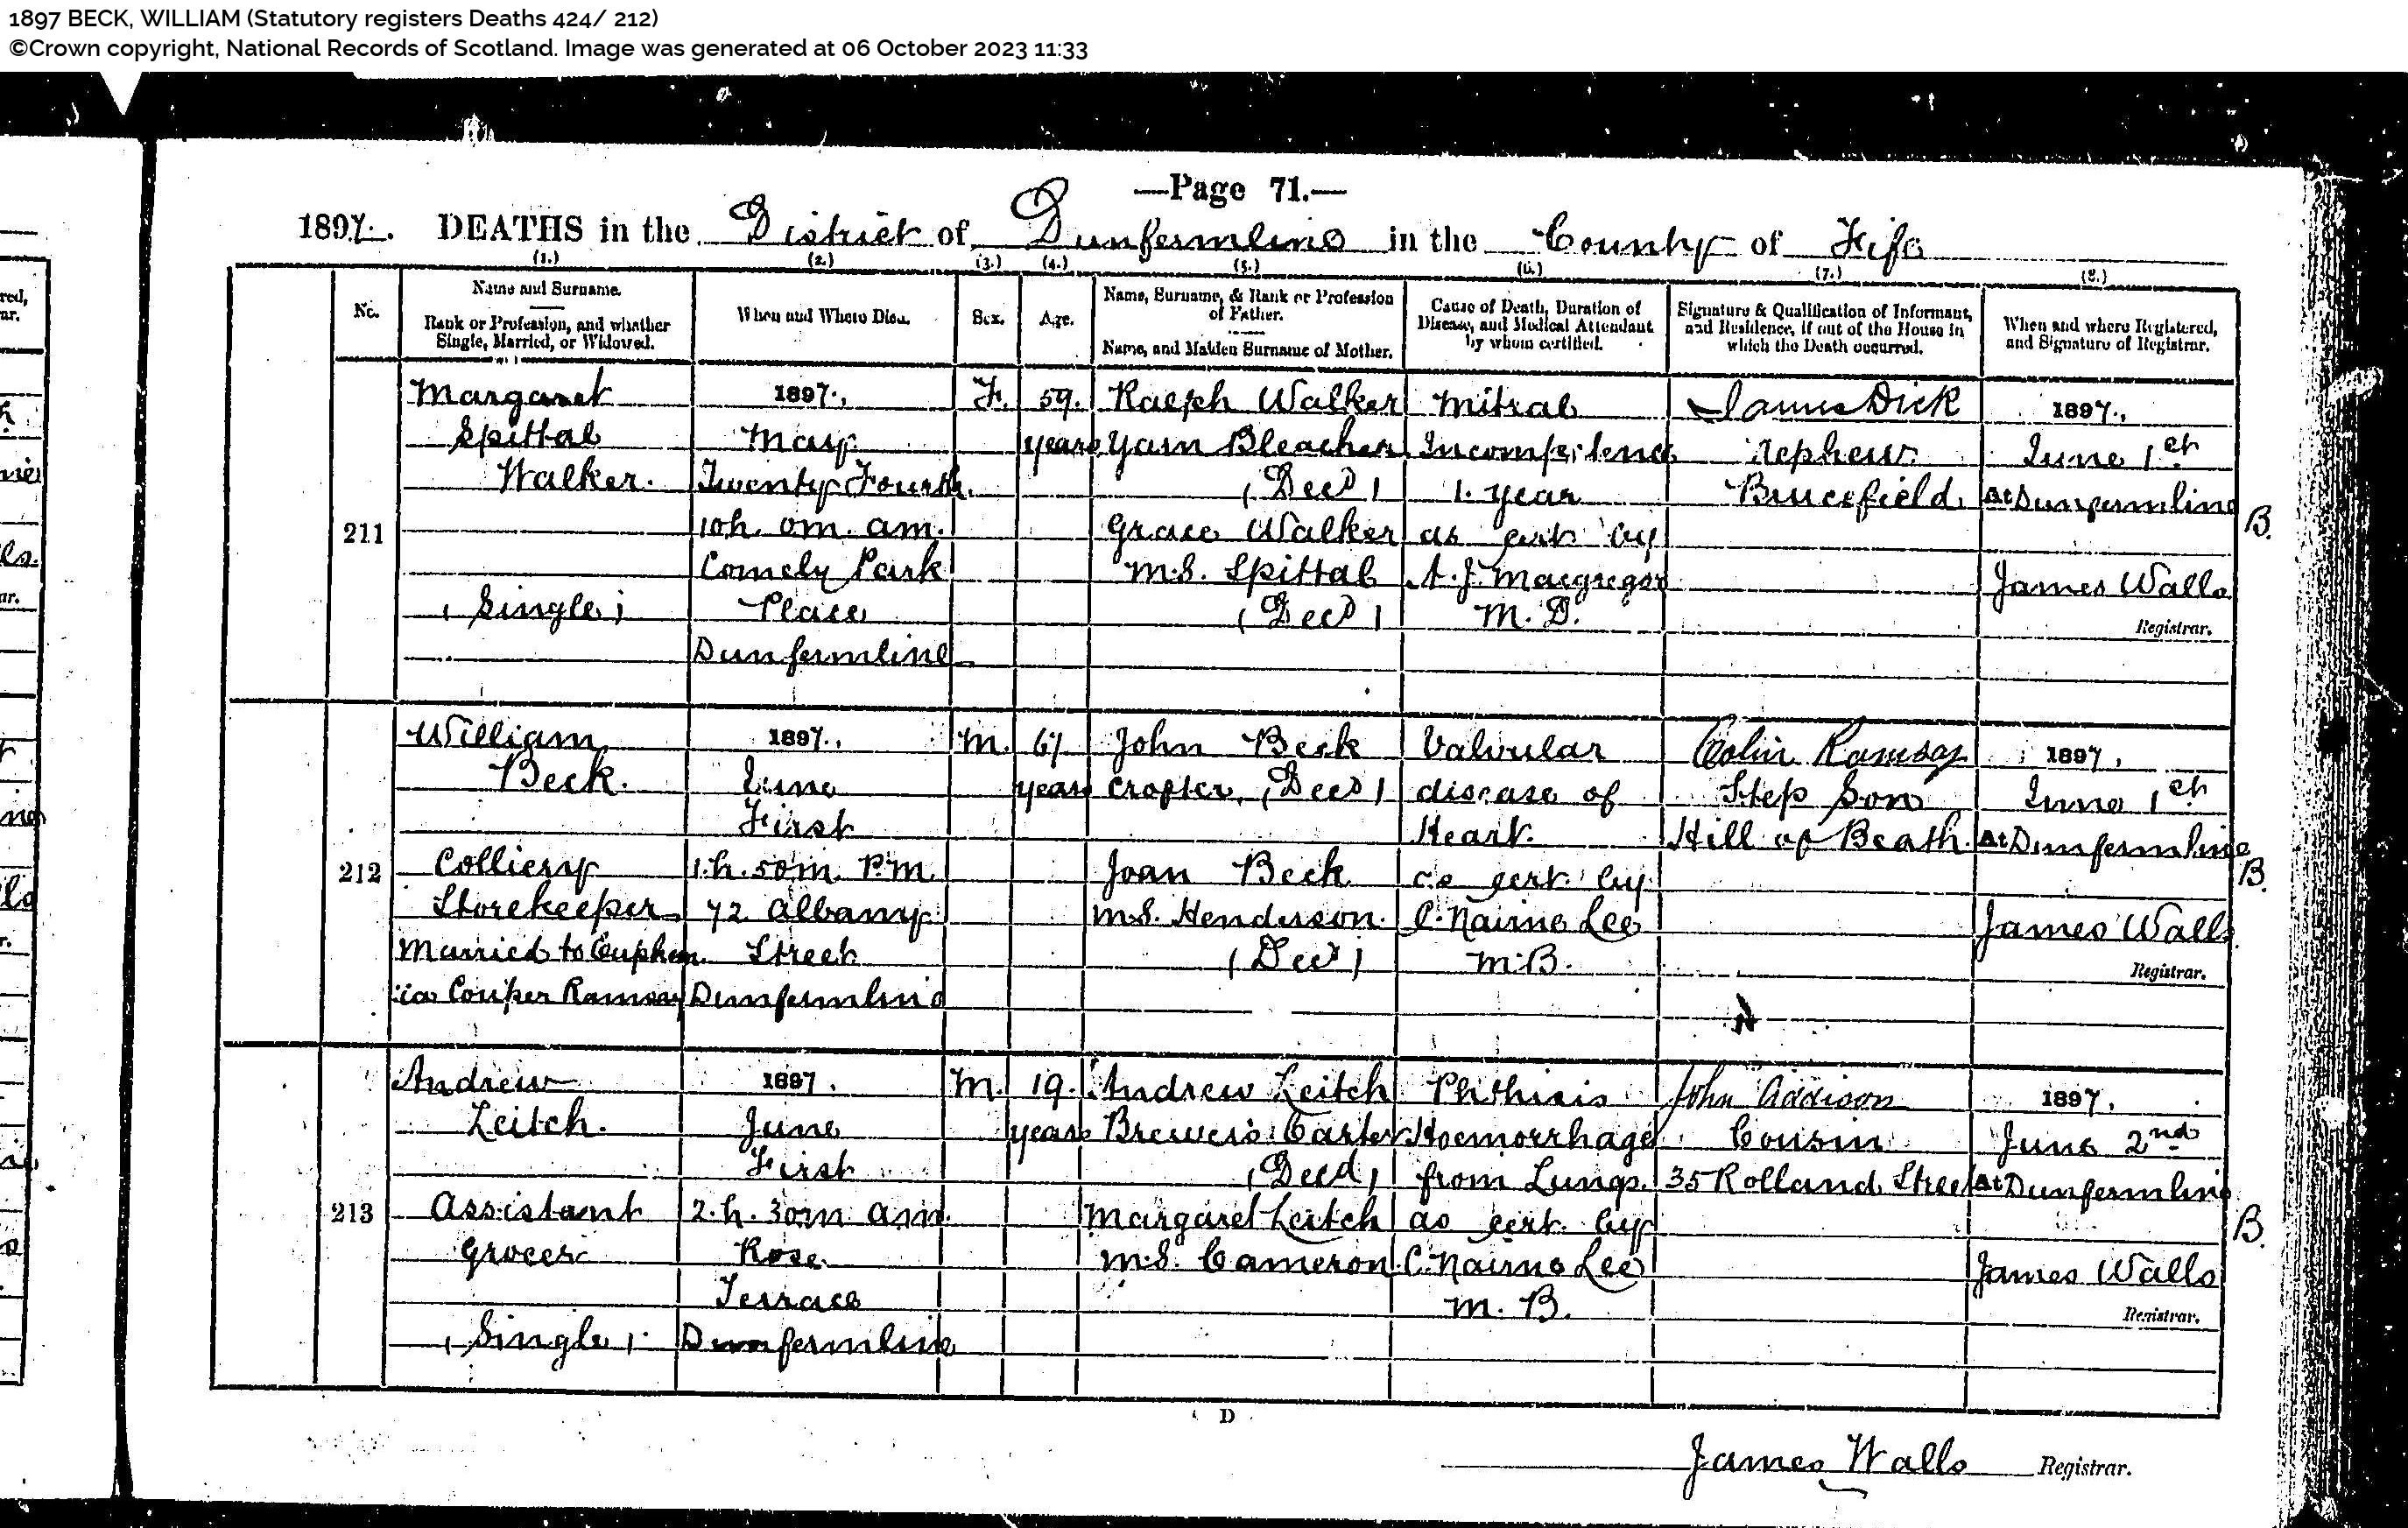 1897 BECK, WILLIAM (Statutory registers Deaths 424/ 212)
©Crown copyright, National Records of Scotland. Image was generated at 06 October 2023 11:33
—Page 71.—
1897. DEATHS in the District of Dunfermline in the County of Fife
(1.) (2.) (3.) (4.) (5.) (6.) (7.) (8.)
No.
Name and Surname.
Rank or Profession, and whether
Single, Married, or Widowed.
When and Where Died.
Sex.
Age.
Name, Surname, & Rank or Profession
of Father.
Name, and Maiden Surname of Mother.
Cause of Death, Duration of
Disease, and Medical Attendant
by whom certified.
Signature & Qualification of Informant,
and Residence, if out of the House in
which the Death occurred.
When and where Registered,
and Signature of Registrar.
211
Margaret
Spittal
Walker.
(Single)
1897.,
May
Twenty Fourth.
10h. 0m. am.
Comely Park
Place
Dunfermline
F.
59.
years
Ralph Walker
Yarn Bleacher
(Decd)
Grace Walker
M.S. Spittal
(Decd)
Mitral
Incompetence
1. year
as cert by
A. J. Macgregor
M. D.
James Dick
Nephew
Brucefield
1897.,
June 1st
At Dunfermline
James Walls
Registrar.
B.
212
William
Beck.
Colliery
Storekeeper
Married to Euphem
:ia Couper Ramsay
1897.,
June
First
1.h. 50m. P.M.
72 Albany
Street
Dunfermline
M.
67
years
John Beck
Crofter, (Decd)
Joan Beck
M.S. Henderson.
(Decd)
Valvular
disease of
Heart.
as cert. by
C. Nairne Lee
M.B.
Colin Ramsay
Step Son
Hill of Beath.
1897,
June 1st
At Dunfermline
James Walls
Registrar.
B.
213
Andrew
Leitch.
Assistant
Grocer
(Single).
1897.
June
First
2.h. 30m am.
Rose
Terrace
Dunfermline
M.
19.
years
Andrew Leitch
Brewer's Carter
(Decd)
Margaret Leitch
M.S. Cameron.
Phthisis
Hoemorrhage
from Lungs.
as cert. by
C. Nairne Lee
M. B.
John Addison
Cousin
35 Rolland Street
1897,
June 2nd
At Dunfermline
James Walls
Registrar.
B.
D
James Walls Registrar.